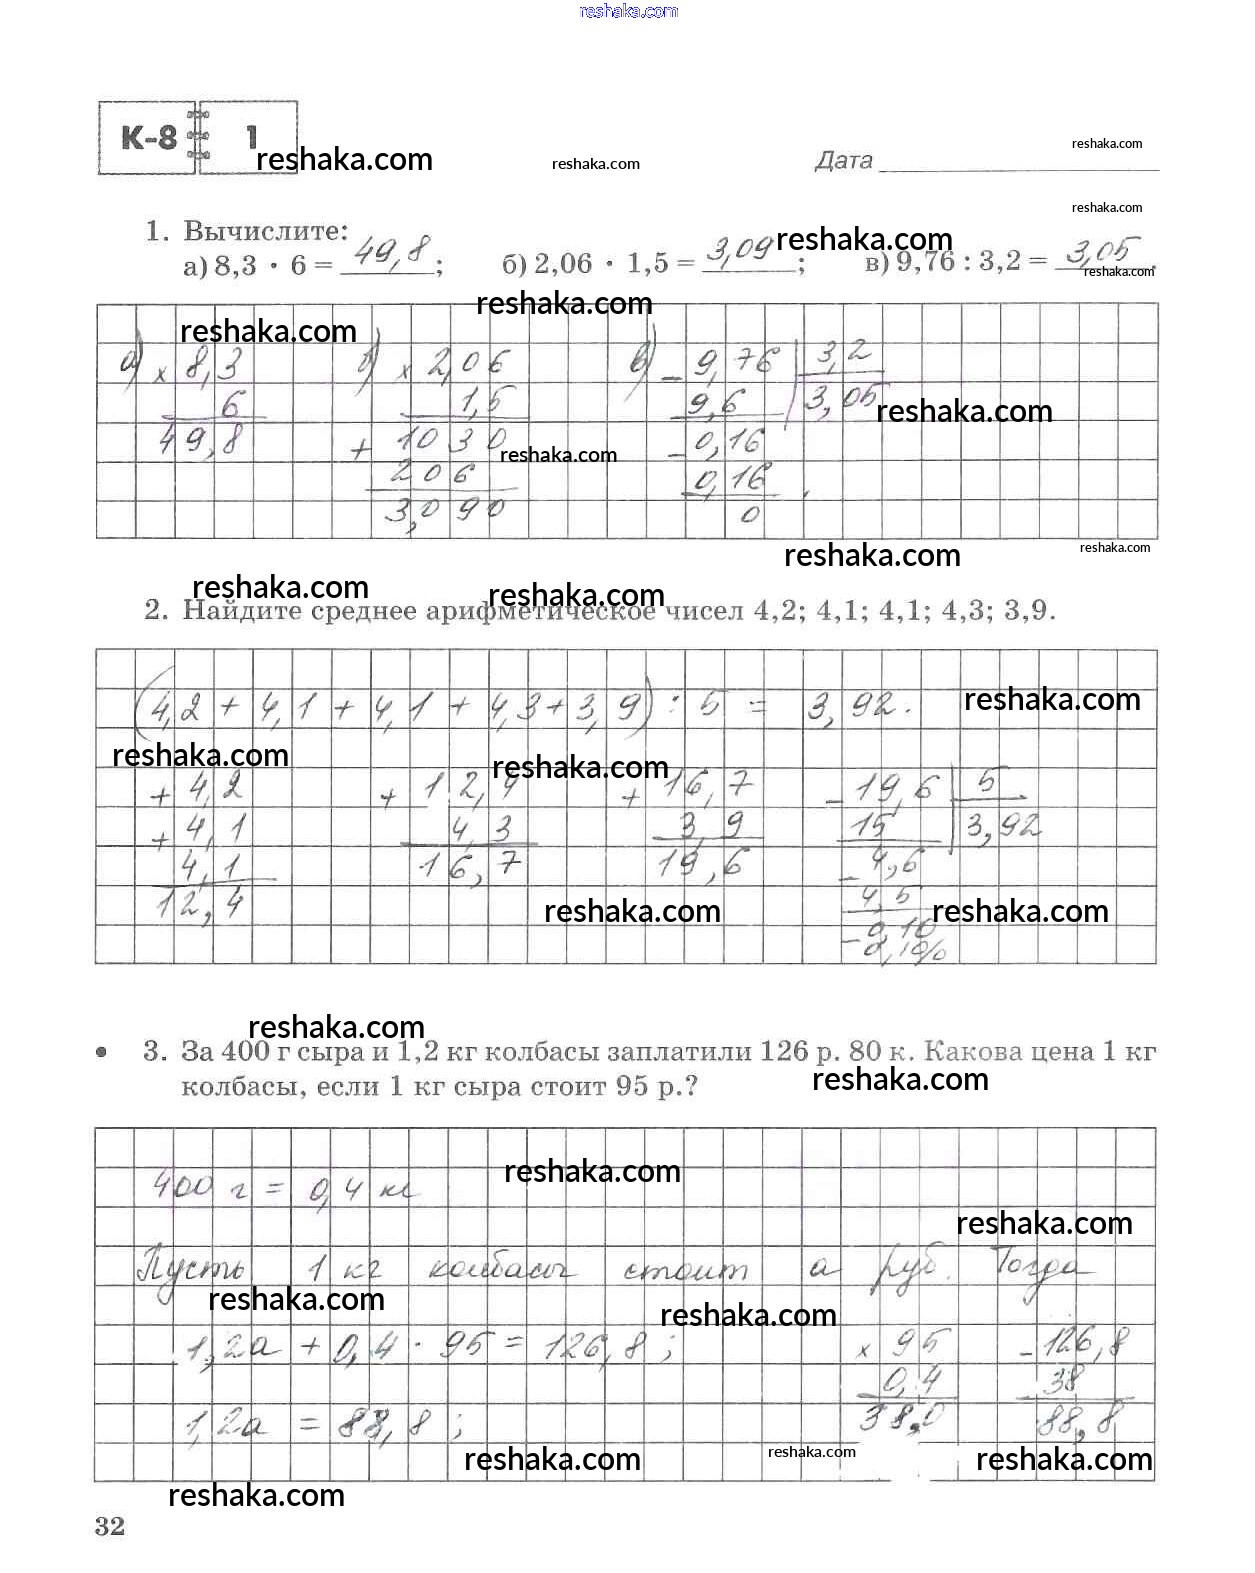 reshaka.com
К-8 1
reshaka.com reshaka.com Дата reshaka.com
reshaka.com
1. Вычислите:
а) 8,3 · 6 = 49,8; б) 2,06 · 1,5 = 3,09; в) 9,76 : 3,2 = 3,05.
reshaka.com reshaka.com
reshaka.com reshaka.com
а) × 8,3 б) × 2,06 в) - 9,76 3,2
6 1,5 9,6 3,05 reshaka.com
49,8 + 1030 reshaka.com - 0,16
206 0,16
3,090 0
reshaka.com reshaka.com
reshaka.com reshaka.com
2. Найдите среднее арифметическое чисел 4,2; 4,1; 4,1; 4,3; 3,9.
(4,2 + 4,1 + 4,1 + 4,3 + 3,9) : 5 = 3,92. reshaka.com
reshaka.com reshaka.com
+ 4,2 + 12,4 + 16,7 - 19,6 5
+ 4,1 4,3 3,9 15 3,92
4,1 16,7 19,6 - 4,6
12,4 4,5
reshaka.com reshaka.com
- 0,10
reshaka.com
• 3. За 400 г сыра и 1,2 кг колбасы заплатили 126 р. 80 к. Какова цена 1 кг
колбасы, если 1 кг сыра стоит 95 р.?
reshaka.com
reshaka.com
400 г = 0,4 кг
reshaka.com
Пусть 1 кг колбасы стоит а руб. Тогда
reshaka.com reshaka.com
1,2а + 0,4 · 95 = 126,8; × 95 - 126,8
0,4 38
1,2а = 88,8; 38,0 88,8
reshaka.com reshaka.com reshaka.com
reshaka.com
32